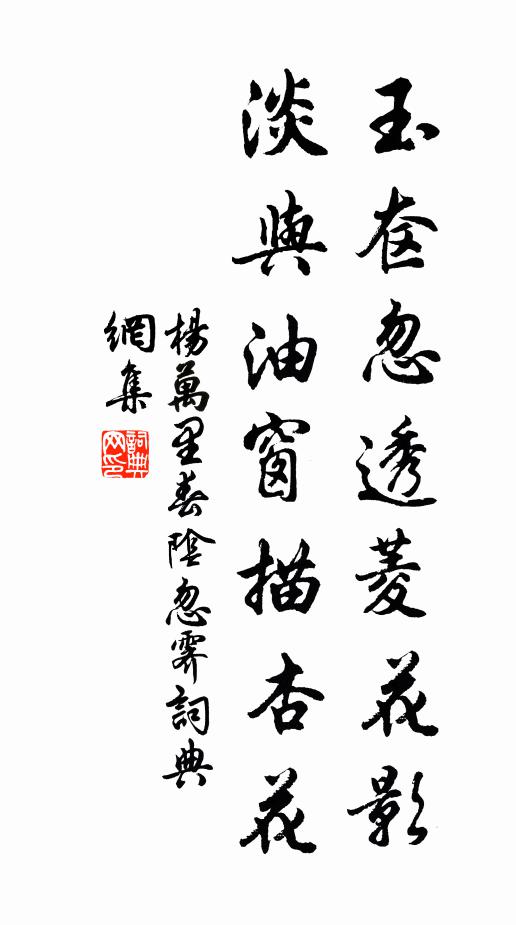 玉奁忽透菱花影
淡與油窗描杏花
楊萬里春陰忽霽詞典
網集
詞典网印